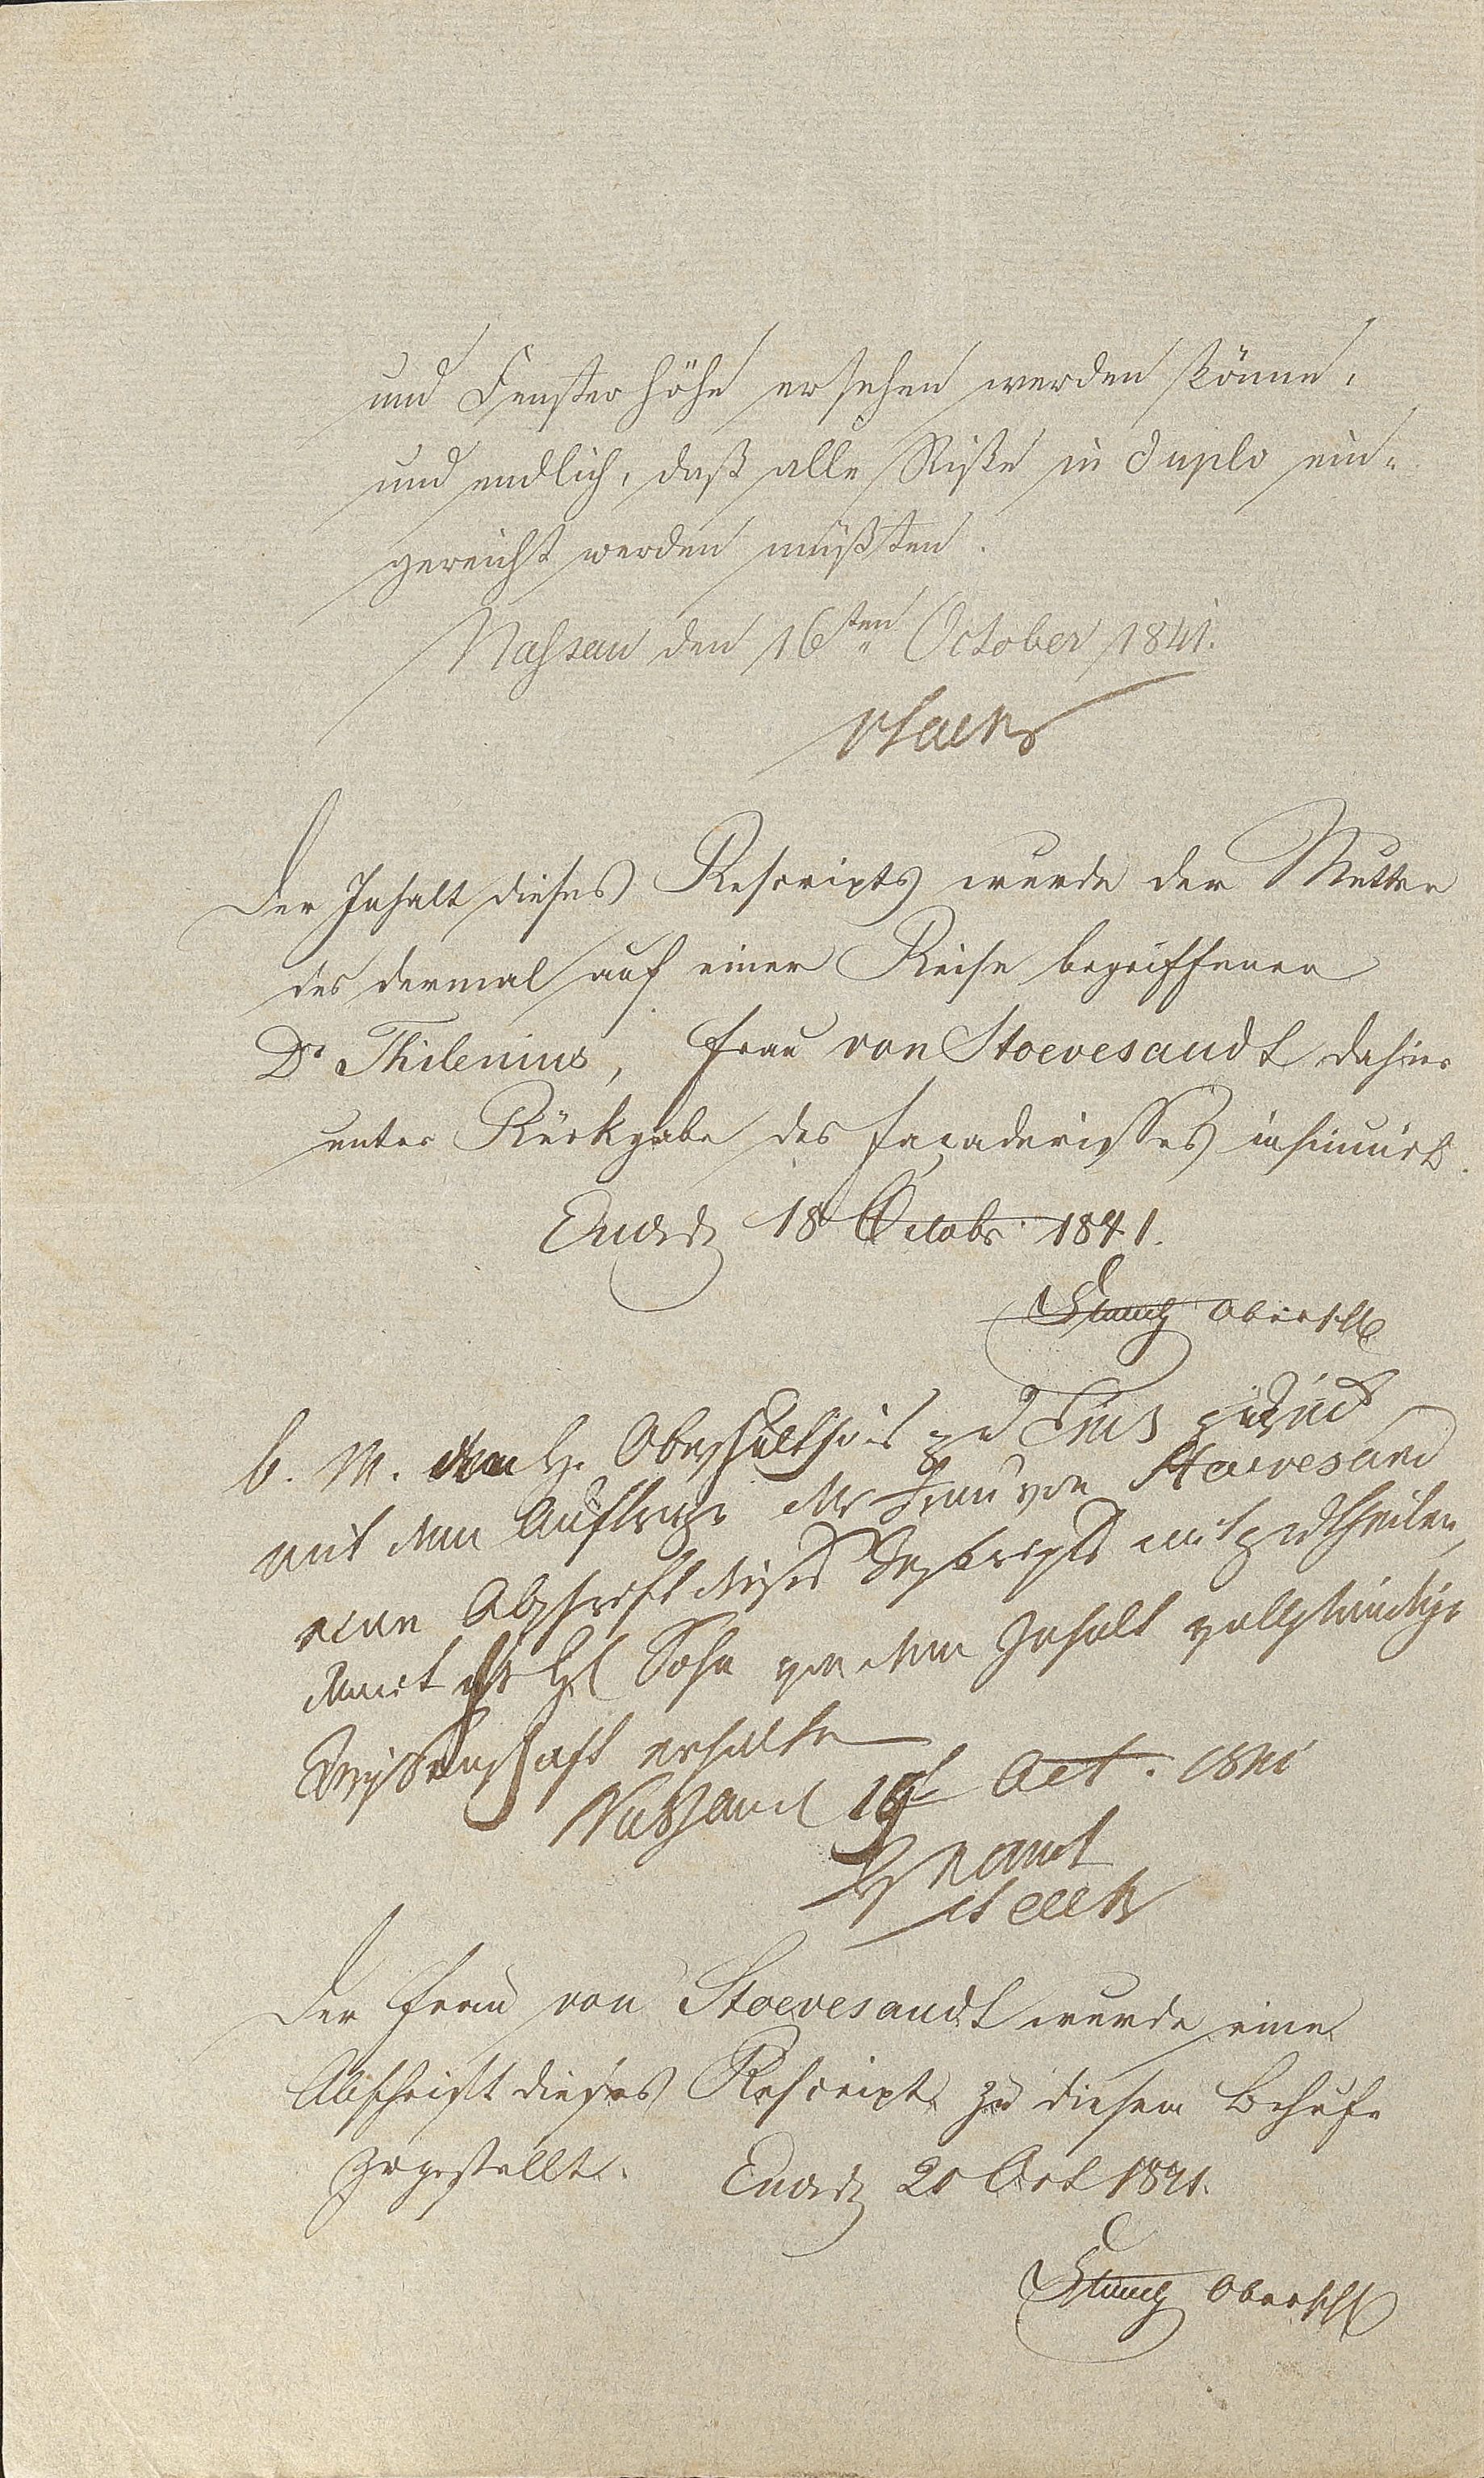 und Fensterhöhe ersehen werden könne,
und endlich, daß alle Riße in duplo ein-
gereicht werden müßten.
Nassau den 16ten October 1841.
Der Inhalt dieses Rescripts wurde der Mutter
des dermal auf einer Reise begriffenen
Dr Thilenius, Frau von Stoevesandt dahier
unter Rückgabe des Façaderisses insinuirt.
18 Octobr 1841.
Obersch
b. M. dem H. Oberschultheis zu Ems zurück
mit dem Auftrage der Frau von Stoevesand
eine Abschrift dieses Rescripts mitzutheilen,
damit ihr H Sohn von dem Inhalt vollständige
Wissenschaft erhalte
Nassau 19t Oct. 1841
Der Frau von Stoevesandt wurde eine
Abschrift dieses Rescripts zu diesem Behufe
zugestellt. 21 Oct 1841.
Obersch